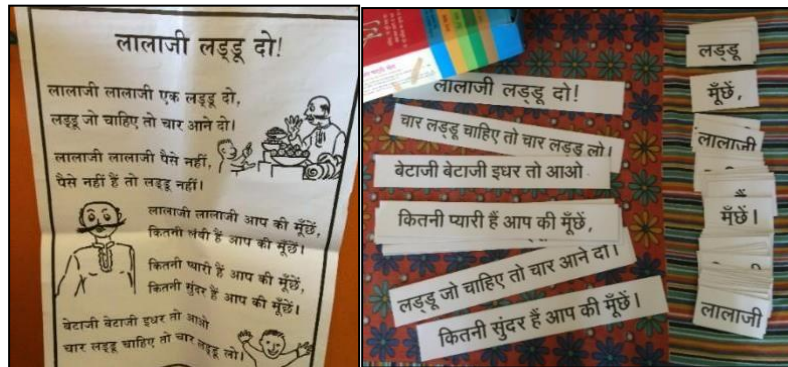 लालाजी लड्डू दो!
लालाजी लालाजी एक लड्डू दो,
लड्डू जो चाहिए तो चार आने दो।
लालाजी लालाजी पैसे नहीं,
पैसे नहीं हैं तो लड्डू नहीं।
लालाजी लालाजी आप की मूँछें,
कितनी लंबी हैं आप की मूँछें।
कितनी प्यारी हैं आप की मूँछें,
कितनी सुंदर हैं आप की मूँछें।
बेटाजी बेटाजी इधर तो आओ
चार लड्डू चाहिए तो चार लड्डू लो।
लालाजी लड्डू दो!
चार लड्डू चाहिए तो चार लड्डू लो।
बेटाजी बेटाजी इधर तो आओ
कितनी प्यारी हैं आप की मूँछें,
लड्डू जो चाहिए तो चार आने दो।
कितनी सुंदर हैं आप की मूँछें।
लड्डू
मूँछें,
लालाजी
हैं
मूँछें।
लालाजी